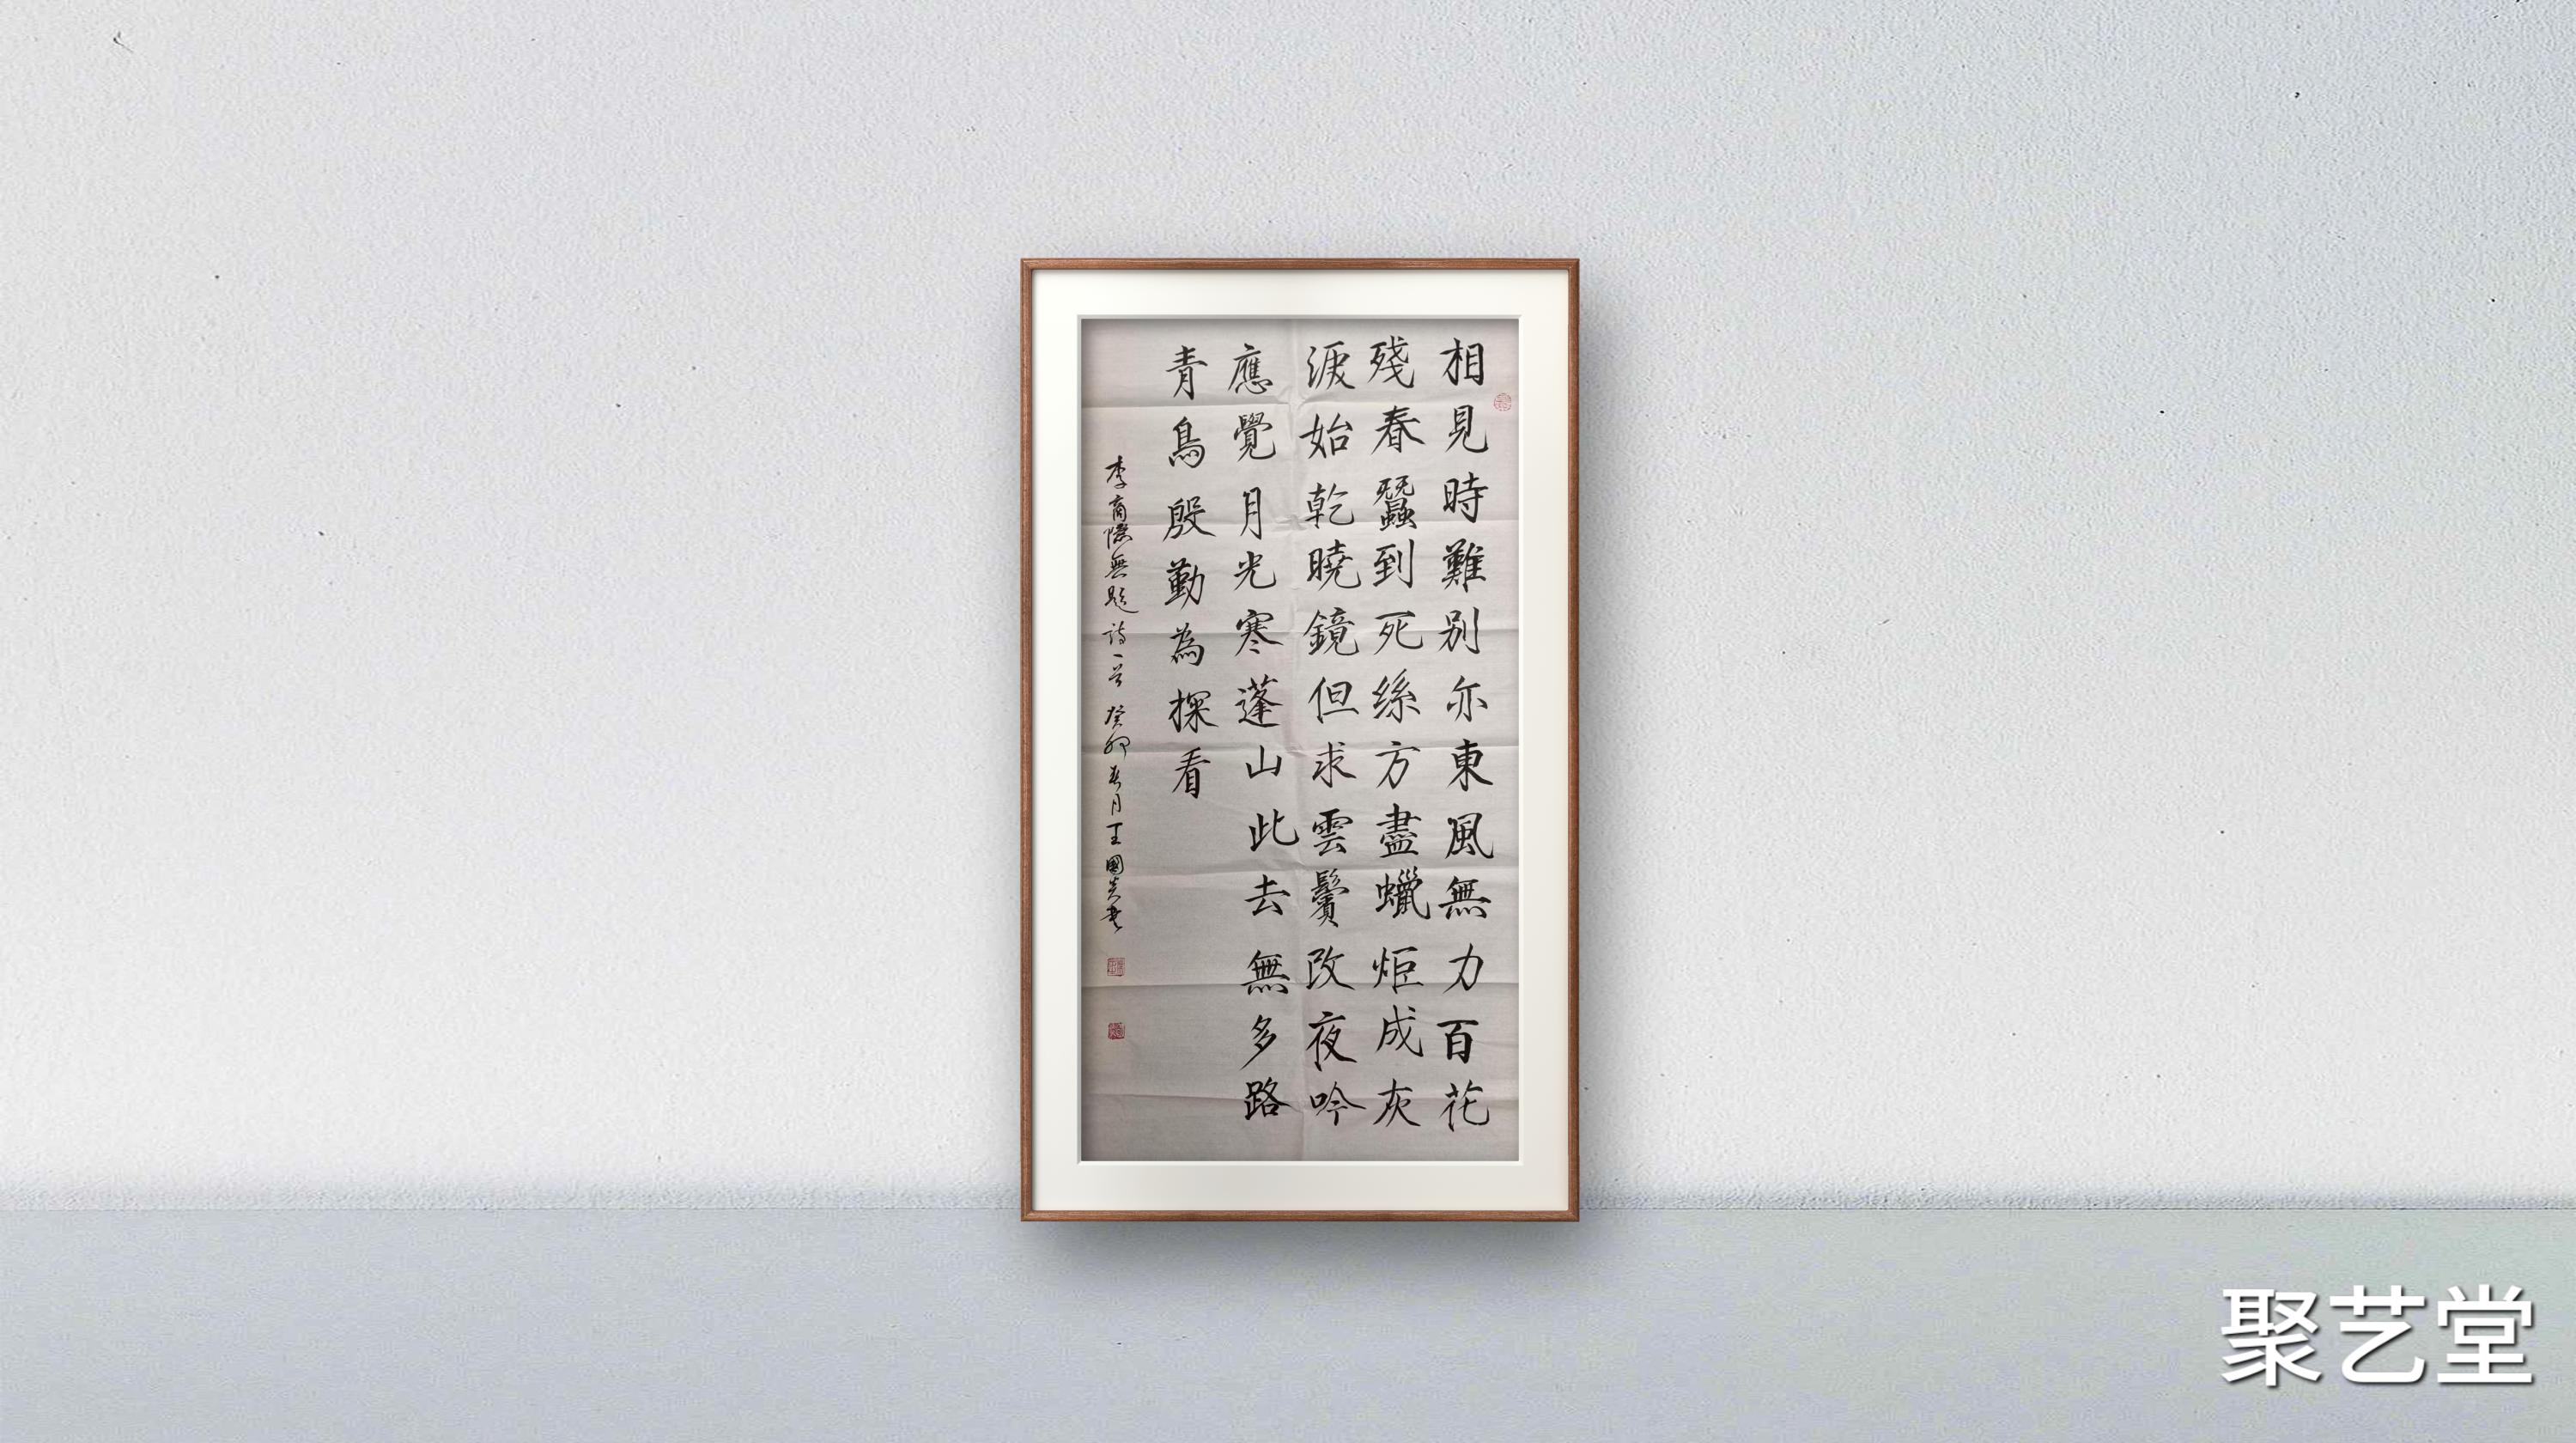 相見時難別亦東風無力百花
殘春蠶到死絲方盡蠟炬成灰
淚始乾曉鏡但求雲鬢改夜吟
應覺月光寒蓬山此去無多路
青鳥殷勤為探看
李商隱無題詩一首 癸卯春月王國炎書
聚艺堂